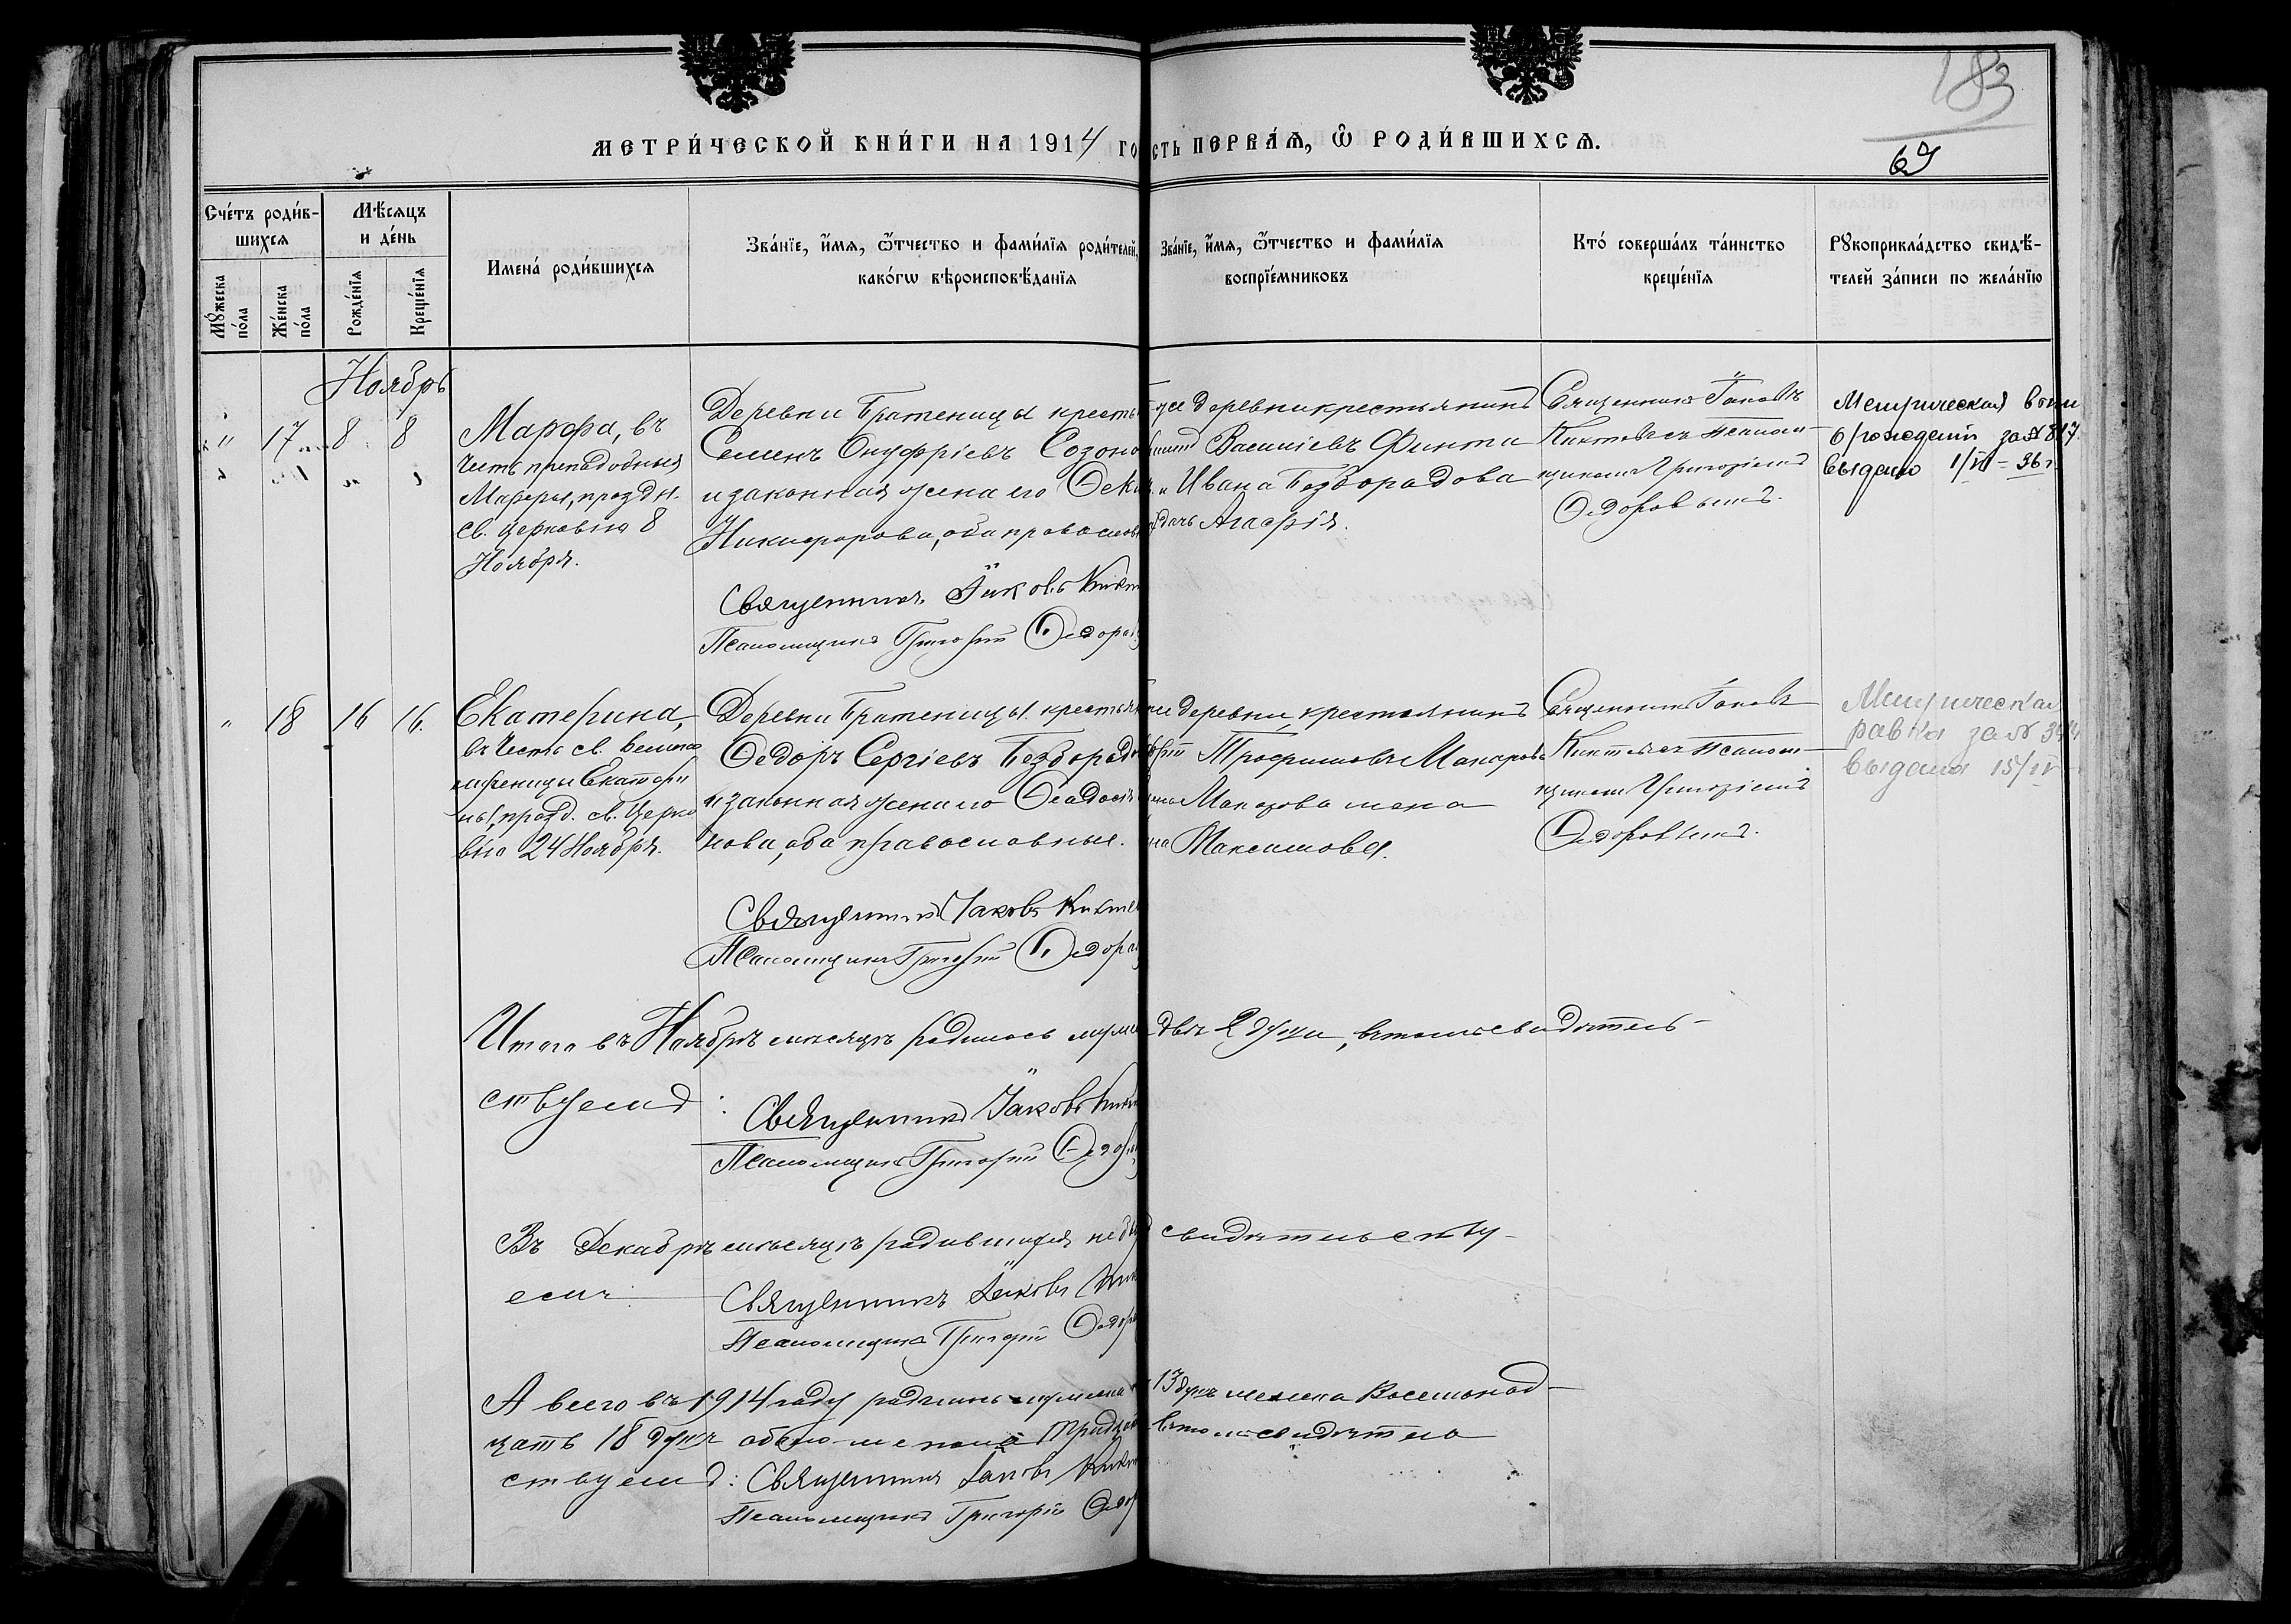 183
МЕТРИ́ЧЕСКОЙ КНИ́ГИ НА 1914 ГО
СТЬ ПЕРВА́Ѧ, Ѽ РОДИ́ВШИХСѦ.
69
Сче́тъ роди́в-
шихсѧ
Мѣ́сѧцъ
и де́нь
Мꙋ́жеска
по́ла
Же́нска
по́ла
Рожде́нїѧ
Креще́нїѧ
Имена́ роди́вшихсѧ
Зва́нїе, и҆́мѧ, ѻ҆́тчество и фами́лїѧ роди́телей,
како́гѡ вѣроисповѣ́данїѧ
Зва́нїе, и҆́мѧ, ѻ҆́тчество и фами́лїѧ
воспрїе́мниковъ
Кто́ соверша́лъ та́инство
креще́нїѧ
Рꙋкоприкла́дство свидѣ́-
телей за́писи по жела́нїю
Ноябрь
" 17 8 8
Марфа, въ
честь преподобныя
Марфы, праздн.
св. церковію 8
Ноября.
Деревни Братеницы кресть
Семенъ Онуфріевъ Созоно
и законная жена его Фек
Никифорова, оба правослов
Священникъ Іаковъ Кикт
Псаломщикъ Григорій Ѳедоров
же деревни крестьянинъ
Василіевъ Финти
и Ивана Безбородова
дочь Агафія.
Священникъ Іаковъ
Киктевъ съ псалом-
щикомъ Григоріемъ
Ѳедоровымъ.
Метрическая
о рожденіи за № 817
выдано 1/VI - 36 г.
" 18 16 16.
Екатерина,
въ честь св. велико
мученицы Екатери
ны, празд. св. Церко
вію 24 Ноября.
Деревни Братеницы крестьян
Ѳедоръ Сергіевъ Безбородо
и законная жена его Ѳеодосія
нова, оба православные.
Священникъ Іаковъ Кикте
Псаломщикъ Григорій Ѳедоров
деревни крестьянинъ
Трофимовъ Макаровъ
Макарова жена
Максимова.
Священникъ Іаковъ
Киктевъ съ псалом-
щикомъ Григоріемъ
Ѳедоровымъ.
Метрическая
равка за № 344
выдана 15/IV
Итого въ Ноябрѣ мѣсяцѣ родилось муже
двѣ 2 души, въ томъ свидѣтель-
ствуемъ:
Священникъ Іаковъ Кикт
Псаломщикъ Григорій Ѳедоров
Въ Декабрѣ мѣсяцѣ родившихся не бы
свидѣтельству-
емъ:
Священникъ Іаковъ Кик
Псаломщикъ Григорій Ѳедоро
А всего въ 1914 году родилось мужеска
13 душъ женска Восемнад-
цать 18 душъ обоего же пола Тридца
въ томъ свидѣтель
ствуемъ: Священникъ Іаковъ Кикт
Псаломщикъ Григорій Ѳедор